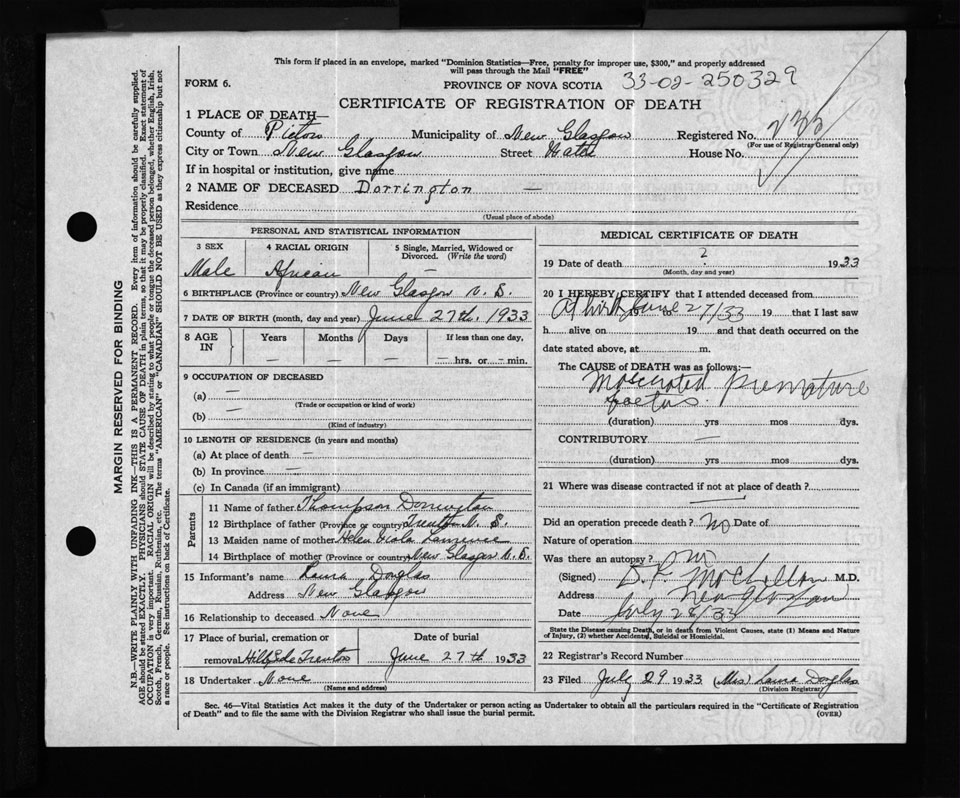 This form if placed in an envelope, marked "Dominion Statistics—Free, penalty for improper use, $300," and properly addressed
will pass through the Mail "FREE"
FORM 6.
PROVINCE OF NOVA SCOTIA
33-02-250329
CERTIFICATE OF REGISTRATION OF DEATH
1 PLACE OF DEATH—
County of Pictou Municipality of New Glasgow Registered No.
(For use of Registrar General only)
City or Town New Glasgow Street House No.
If in hospital or institution, give name
2 NAME OF DECEASED Dorrington —
Residence
(Usual place of abode)
PERSONAL AND STATISTICAL INFORMATION
3 SEX 4 RACIAL ORIGIN 5 Single, Married, Widowed or Divorced. (Write the word)
Male African —
6 BIRTHPLACE (Province or country) New Glasgow N. S.
7 DATE OF BIRTH (month, day and year) June 27th. 1933
8 AGE IN Years Months Days If less than one day,
— — — — hrs. or — min.
9 OCCUPATION OF DECEASED
(a) —
(Trade or occupation or kind of work)
(b) —
(Kind of industry)
10 LENGTH OF RESIDENCE (in years and months)
(a) At place of death —
(b) In province —
(c) In Canada (if an immigrant)
Parents
11 Name of father Thompson Dorrington
12 Birthplace of father (Province or country) Trenton N. S.
13 Maiden name of mother Helen Viola Lawrence
14 Birthplace of mother (Province or country) New Glasgow N. S.
15 Informant's name Laura Douglas
Address New Glasgow
16 Relationship to deceased None
17 Place of burial, cremation or Date of burial
removal Hillside Trenton June 27th 1933
18 Undertaker None
(Name and address)
MEDICAL CERTIFICATE OF DEATH
19 Date of death ? 1933
(Month, day and year)
20 I HEREBY CERTIFY that I attended deceased from
At birth June 27/33 19 that I last saw
h alive on 19 and that death occurred on the
date stated above, at m.
The CAUSE of DEATH was as follows:—
Premature
foetus.
(duration) yrs mos dys.
CONTRIBUTORY —
(duration) yrs mos dys.
21 Where was disease contracted if not at place of death?
—
Did an operation precede death? No Date of
Nature of operation
Was there an autopsy?
(Signed) M.D.
Address New Glasgow
Date July 28/33
State the Disease causing Death, or in death from Violent Causes, state (1) Means and Nature
of Injury, (2) whether Accidental, Suicidal or Homicidal.
22 Registrar's Record Number
23 Filed July 29 1933 (Mrs) Laura Douglas
(Division Registrar)
Sec. 46—Vital Statistics Act makes it the duty of the Undertaker or person acting as Undertaker to obtain all the particulars required in the "Certificate of Registration
of Death" and to file the same with the Division Registrar who shall issue the burial permit.
(OVER)
MARGIN RESERVED FOR BINDING
N.B.—WRITE PLAINLY WITH UNFADING INK—THIS IS A PERMANENT RECORD. Every item of information should be carefully supplied.
AGE should be stated EXACTLY. PHYSICIANS should STATE CAUSE OF DEATH in plain terms, so that it may be properly classified. Exact statement of
OCCUPATION is very important. RACIAL ORIGIN will be described by stating to what people or tongue the deceased person belonged, whether English, Irish,
Scotch, French, German, Russian, Ruthenian, etc. The terms "AMERICAN" or "CANADIAN" SHOULD NOT BE USED as they express citizenship but not
a race or people. See instructions on back of Certificate.